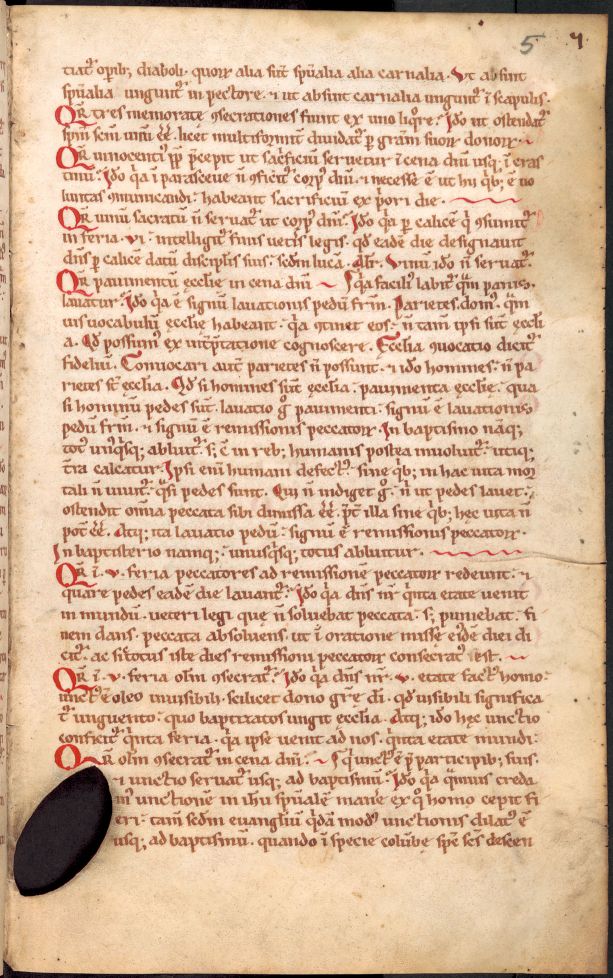 5 4
tiat᷑ opib; diaboli. quoꝝ alia sūt spūalia alia carnalia. Vt absint
spūalia ungunt᷑ in pectore. ⁊ ut absint carnalia ungunt᷑ ī scapulis.
Qꝛ tres memorate ꝯsecrationes fiunt ex uno liq̊re. Ido ut ostendat᷑
spm̄ scm̄ unū ēē. licet multiformit̄ diuidat᷑ ꝑ grām suoꝝ donoꝝ.
Qꝛ innocenti᷒ pp̄ p̄cepit ut sac̄ficiū seruetur ī cena dn̄i usq; ī cras
tinū. Ido q̄a ī parasceue n̄ ꝯficit᷑ corp᷒ dn̄i. ⁊ necesse ē ut hii q̄b; ē uo
luntas ꝯmunicandi. habeant sacrificiū ex p̄ori die.
Qꝛ uinū sacratū n̄ seruat᷑ ut corp᷒ dn̄i. Ido q̄a ꝑ calicē q̄ ꝯsumit᷑
in feria. vi. intelligit᷑ finis uet̄is legis. qd̄ eadē die designauit
dn̄s ꝑ calicē datū discipl̄is suis. sedm̄ luca. Alr̄. Vinū ido n̄ seruat᷑.
Qꝛ pauimentū ęcclie in cena dn̄i I q̄a facili᷒ labit᷑ q̄m panis.
lauatur. Ido q̄a ē signū lauationis pedū frm̄. Parietes. dom᷒. q̄m
uis uocabulū ęcclie habeant. q̄a ꝯtinet eos. n̄ tam̄ ipsi sūt ęccli
a. Qd̄ possum᷒ ex int̄p̄tatione cognoscere. Ecclia ꝯuocatio dicit᷑
fideliū. Conuocari aut̄ parietes n̄ possunt. ⁊ ido homines. n̄ pa
rietes st̄ ęcclia. Qd̄ si homines sūt ęcclia. pauimenta ęcclie. qua
si hominū pedes sūt. lauatio g̊ pauimenti. signū ē lauationis
pedū frm̄. ⁊ signū ē remissionis peccatoꝝ. In baptismo nāq;
tot᷒ un᷒q̄sq; abluit᷑. s; c̄ in reb; humanis postea inuoluit᷑. utiq;
t̄ra calcatur. Ipsi enī humani defect᷒. sine q̄b; in hac uita mor
tali n̄ uiuit᷑. q̄si pedes sunt. Qui n̄ indiget g̊. n̄ ut pedes lauet.
ostendit om̄ia peccata sibi dimissa ēē. p̄t̄ illa sine q̄b; hęc uita n̄
pot̄ ēē. Atq; ita lauatio pedū. signū ē remissionis peccatoꝝ.
In baptisterio namq;. unusq̄sq; totus abluitur.
Qꝛ ī. v. feria peccatores ad remissionē peccatoꝝ redeunt. ⁊
quare pedes eadē die lauant᷑. Ido q̄a dn̄s nr̄ q̄nta etate uenit
in mundū. ueteri legi que n̄ soluebat peccata. s; puniebat. fi
nem dans. peccata absoluens. ut ī oratione missę ei᷒dē diei di
cit᷑. ac si totus iste dies remissioni peccatoꝝ consecrat᷒ ēst.
Qꝛ ī. v. feria olm̄ ꝯsecrat᷑. Ido q̄a dn̄s nr̄. v. etate fact᷒ homo.
unct᷒ ē oleo inuisibili. scilicet dono grē di. qd̄ uisibili significa
t᷑ unguento. quo baptizatos ungit ęcclia. Atq; ido hęc unctio
conficit᷑ q̄nta feria. q̄a ipse uenit ad nos. q̄nta etate mundi.
Qꝛ olm̄ ꝯsecrat᷑ in cena dn̄i. I q̄ unct᷒ ē p̄ participib; suis.
⁊ unctio seruat᷑ usq; ad baptismū. Ido q̄a q̄muis creda
m᷒ unctionē in ih̄u spūalē manē ex q̊ homo cepit fi
eri. tam̄ sedm̄ euangliū q̄dā mod᷒ unctionis dilat᷒ ē
usq; ad baptismū. quando ī specie colūbe spc̄ scs̄ descen